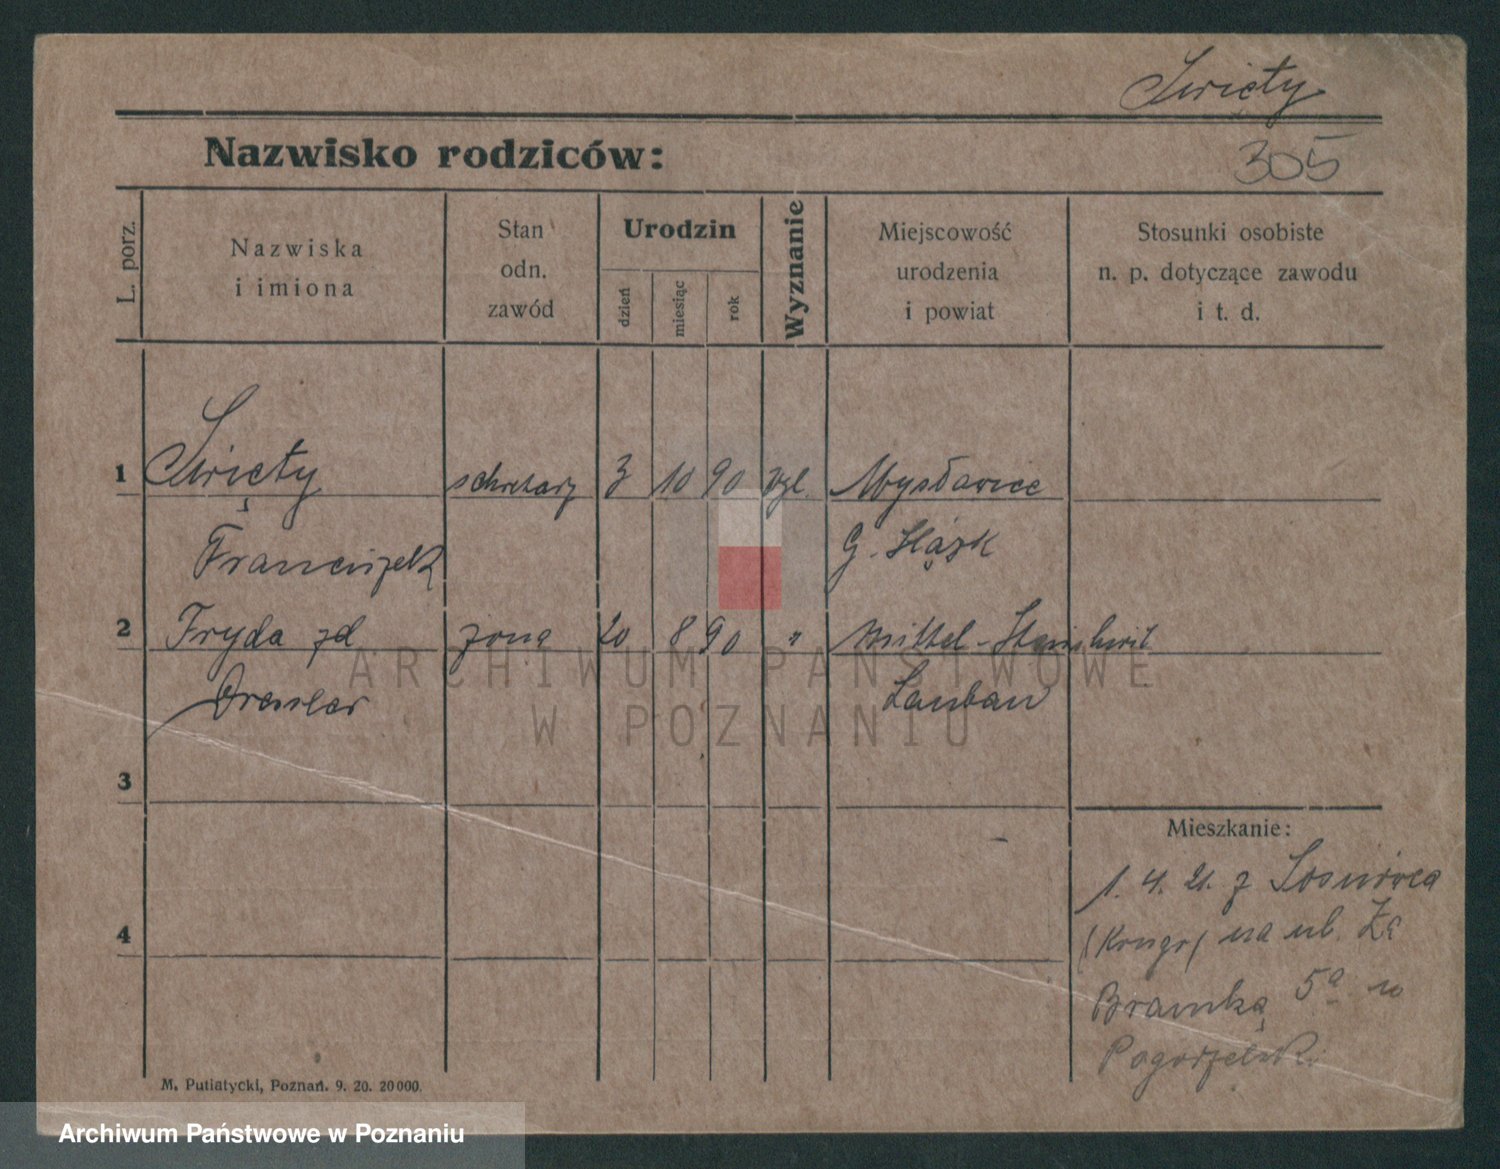 Święty
Nazwisko rodziców:
305
L. porz.
Nazwiska
i imiona
Stan
odn.
zawód
Urodzin
dzień
miesiąc
rok
Wyznanie
Miejscowość
urodzenia
i powiat
Stosunki osobiste
n. p. dotyczące zawodu
i t. d.
1 Święty sekretarz 3 10 90 rzk. Mysłowice
Franciszek G. Śląsk
2 Fryda zd żona 20 8 90 " Mittel-
Lauban
3
Mieszkanie:
1. 4. 21. z Sosnowca
4
(Kongr) na ul. Za
Bramką 5a
M. Putiatycki, Poznań. 9. 20. 20000.
ARCHIWUM PAŃSTWOWE
W POZNANIU
Archiwum Państwowe w Poznaniu